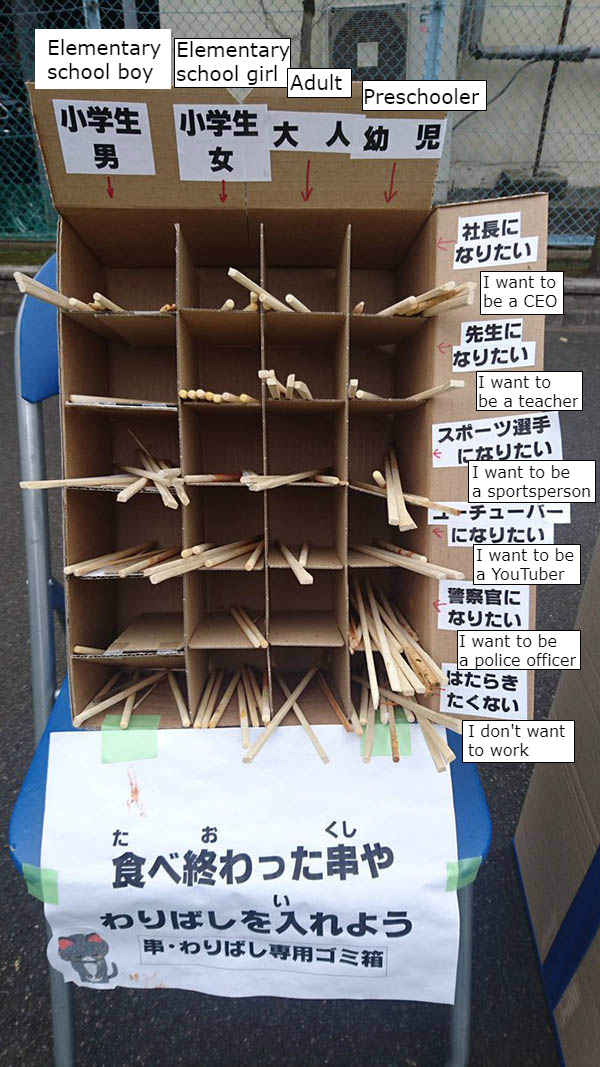 Elementary
school boy
Elementary
school girl
Adult
Preschooler
小学生
男
小学生
女
大人
幼児
社長に
なりたい
I want to
be a CEO
先生に
なりたい
I want to
be a teacher
スポーツ選手
になりたい
I want to be
a sportsperson
ユーチューバー
になりたい
I want to be
a YouTuber
警察官に
なりたい
I want to be
a police officer
はたらき
たくない
I don't want
to work
た お くし
食べ終わった串や
い
わりばしを入れよう
串・わりばし専用ゴミ箱